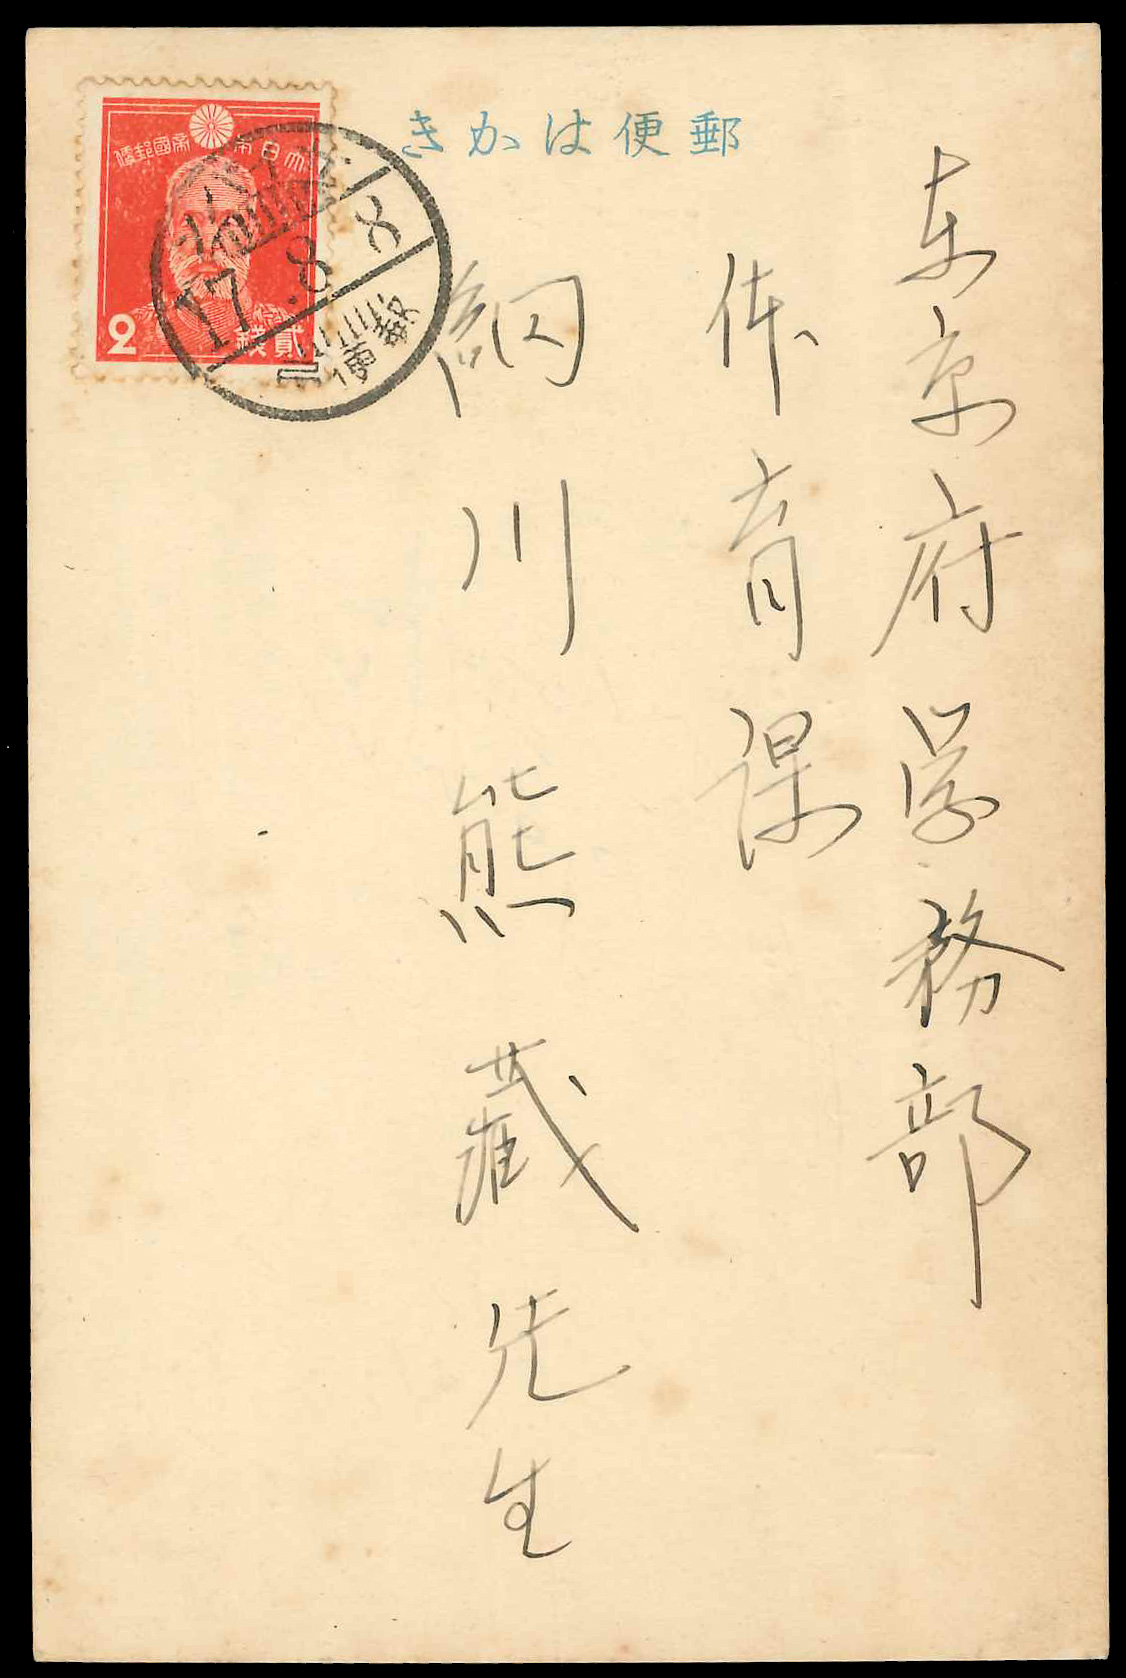 郵便はかき
大日本帝國郵便
2
貳錢
17.8.8
東京府学務部
体育課
細川熊蔵先生